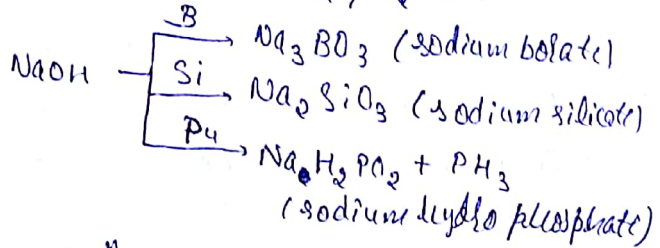 B
Na₃BO₃ (sodium borate)
NaOH Si Na₂SiO₃ (sodium silicate)
P₄ NaH₂PO₂ + PH₃
(sodium hydro phosphate)